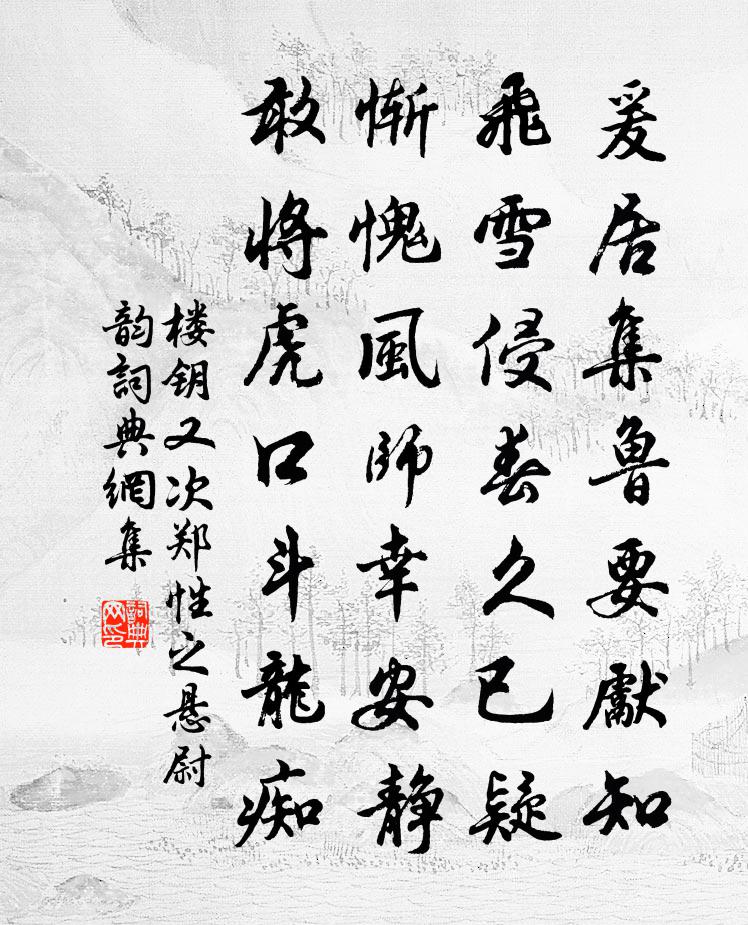 爰居集魯要獻知
飛雪侵春久已疑
惭愧風師幸安静
敢将虎口斗龍痴
楼钥又次郑性之悬尉
韵詞典網集
詞典网印